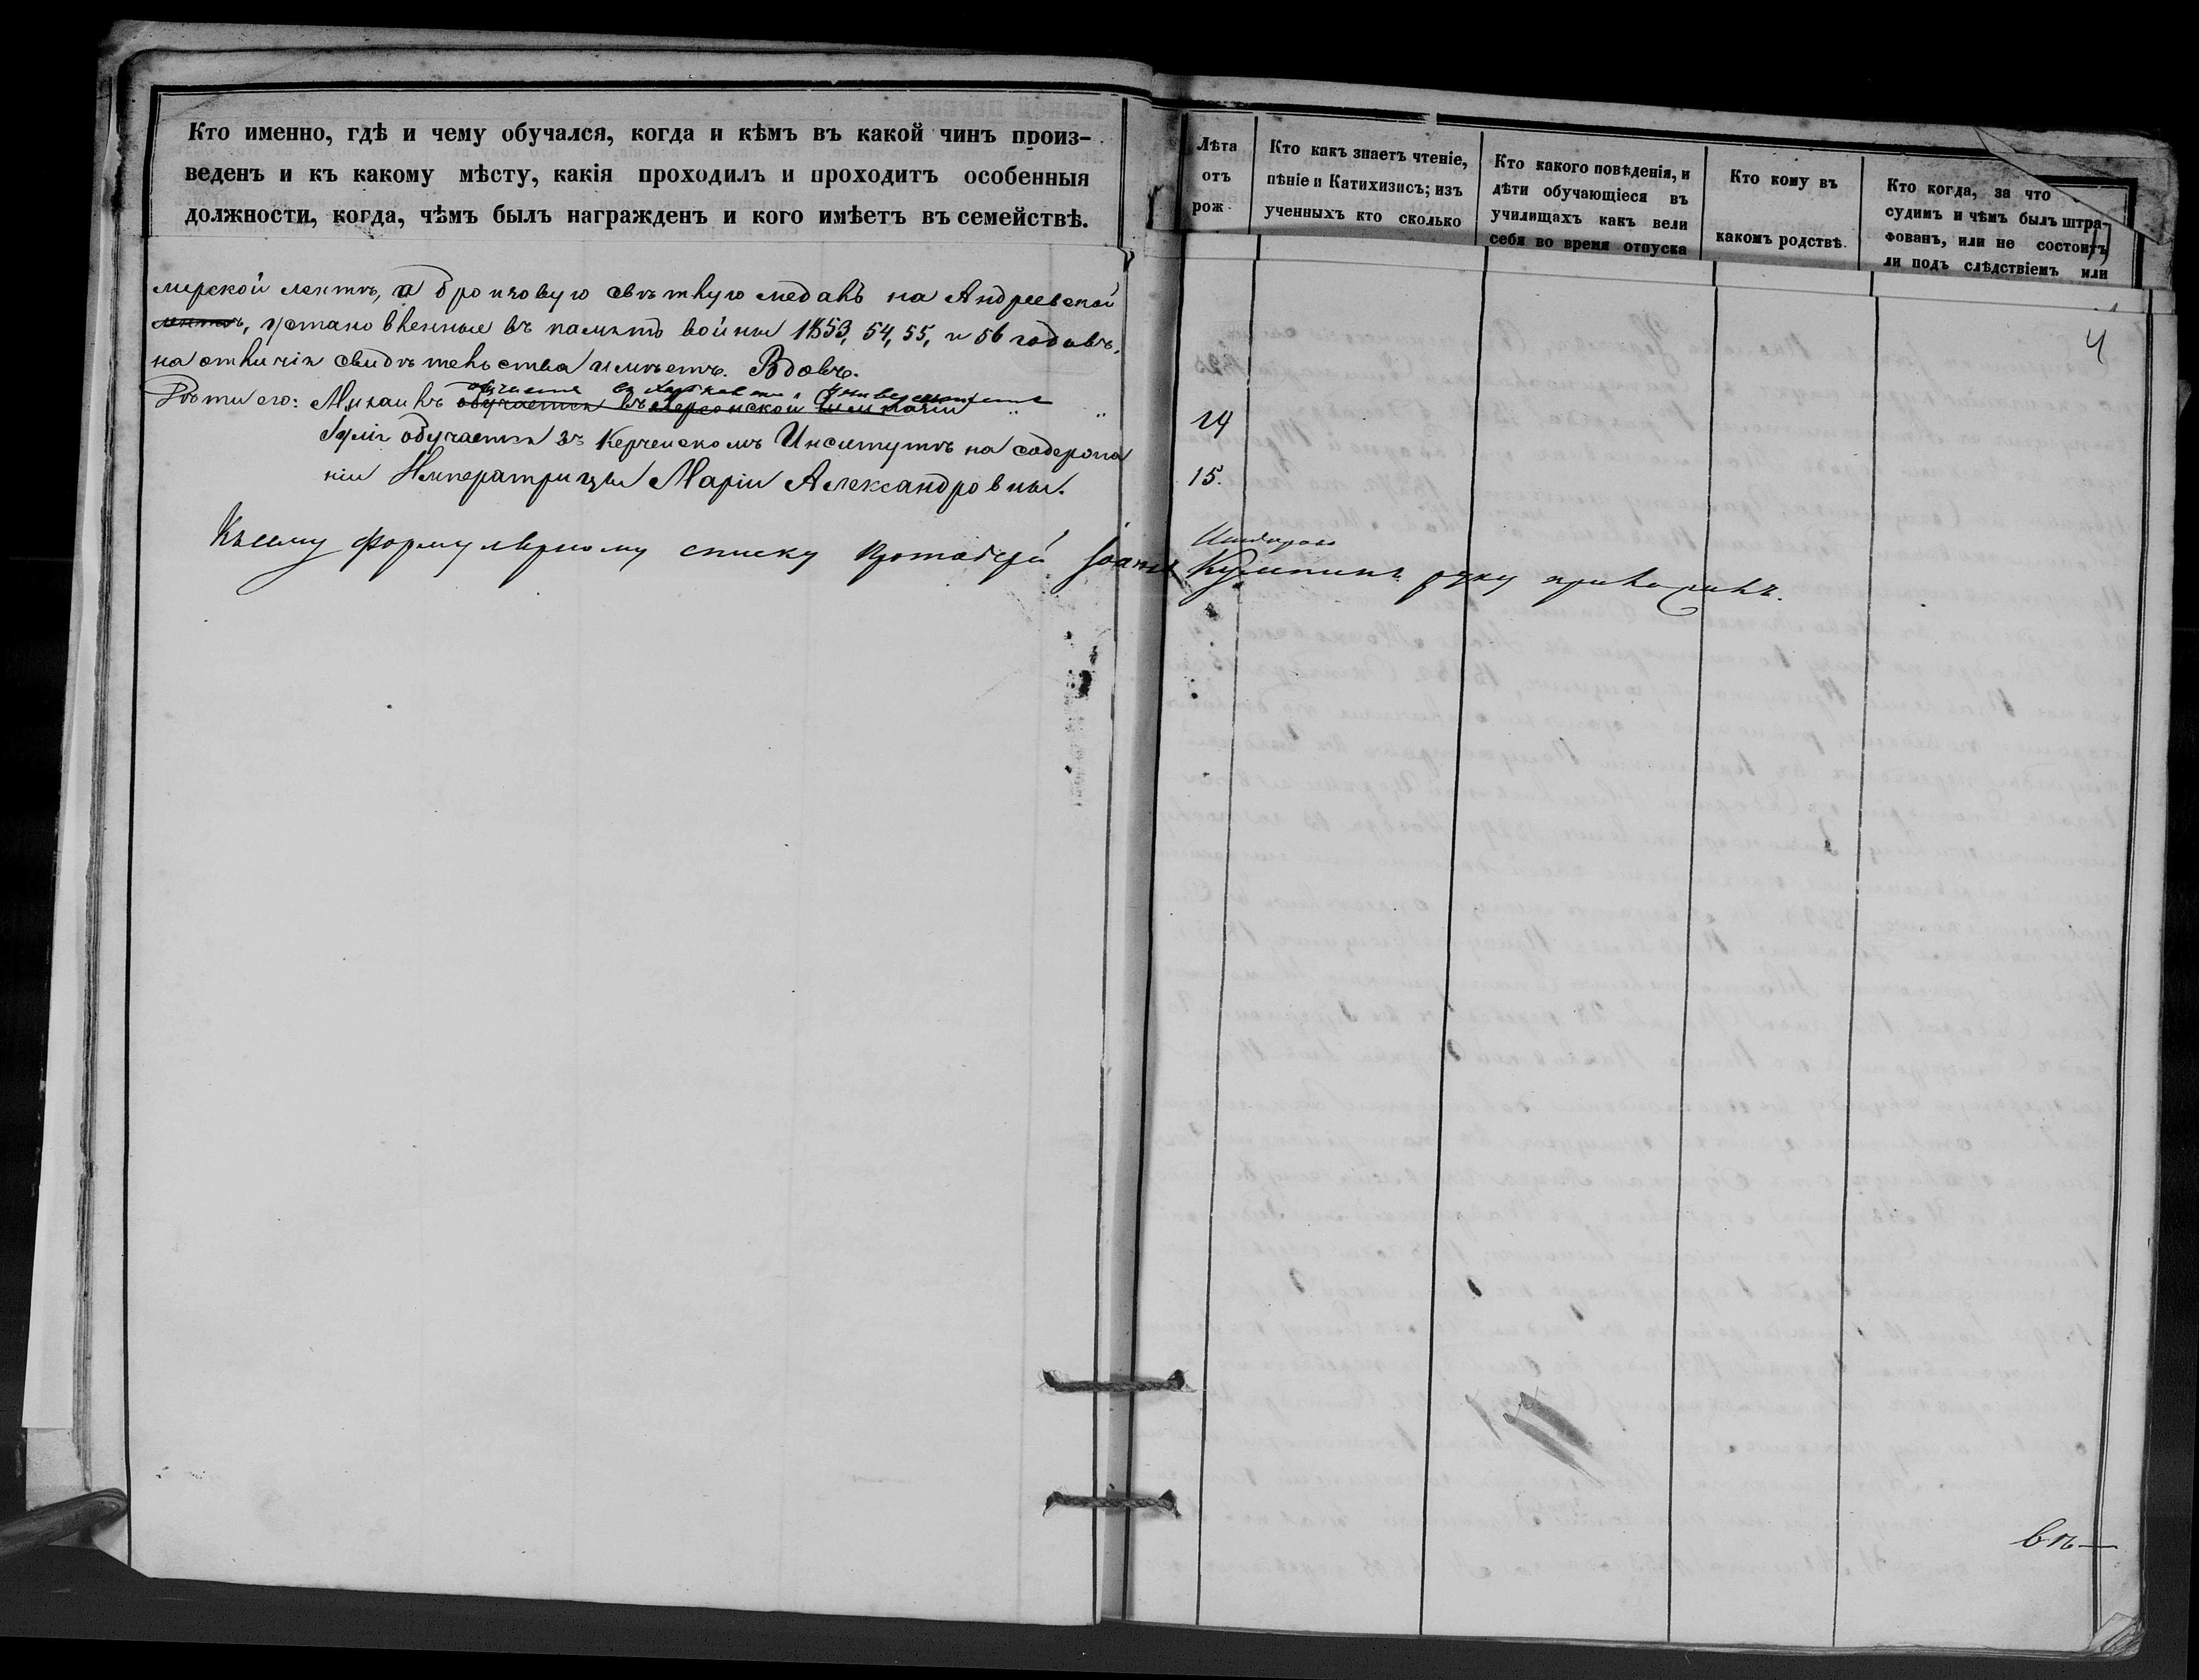 Кто именно, гдѣ и чему обучался, когда и кѣмъ въ какой чинъ произ-
веденъ и къ какому мѣсту, какія проходилъ и проходитъ особенныя
должности, когда, чѣмъ былъ награжденъ и кого имѣетъ въ семействѣ.
мирской лентѣ, а бронзовую свѣтлую медаль на Андреевской
лентѣ, установленные въ память войны 1853, 54, 55, и 56 годовъ,
на отличія свидѣтельства имѣетъ. Вдовъ.
обучается въ Харьковском Университете
Дѣти его: Михаилъ обучается въ Херсонской Гимназіи " "
Юлія обучается въ Керченскомъ Институтѣ на содержа
ніи Императрицы Маріи Александровны.
Къ сему формулярному списку Протоіерей Іоаннъ
Лѣта
отъ
рож
Кто какъ знаетъ чтеніе,
пѣніе и Катихизисъ; изъ
ученныхъ кто сколько
Кто какого поведѣнія, и
дѣти обучающіеся въ
училищахъ какъ вели
себя во время отпуска
Кто кому въ
какомъ родствѣ.
Кто когда, за что
судимъ и чѣмъ былъ штра-
фованъ, или не состоитъ
ли подъ слѣдствіемъ или
4
24
15.
руку приложилъ.
въ—